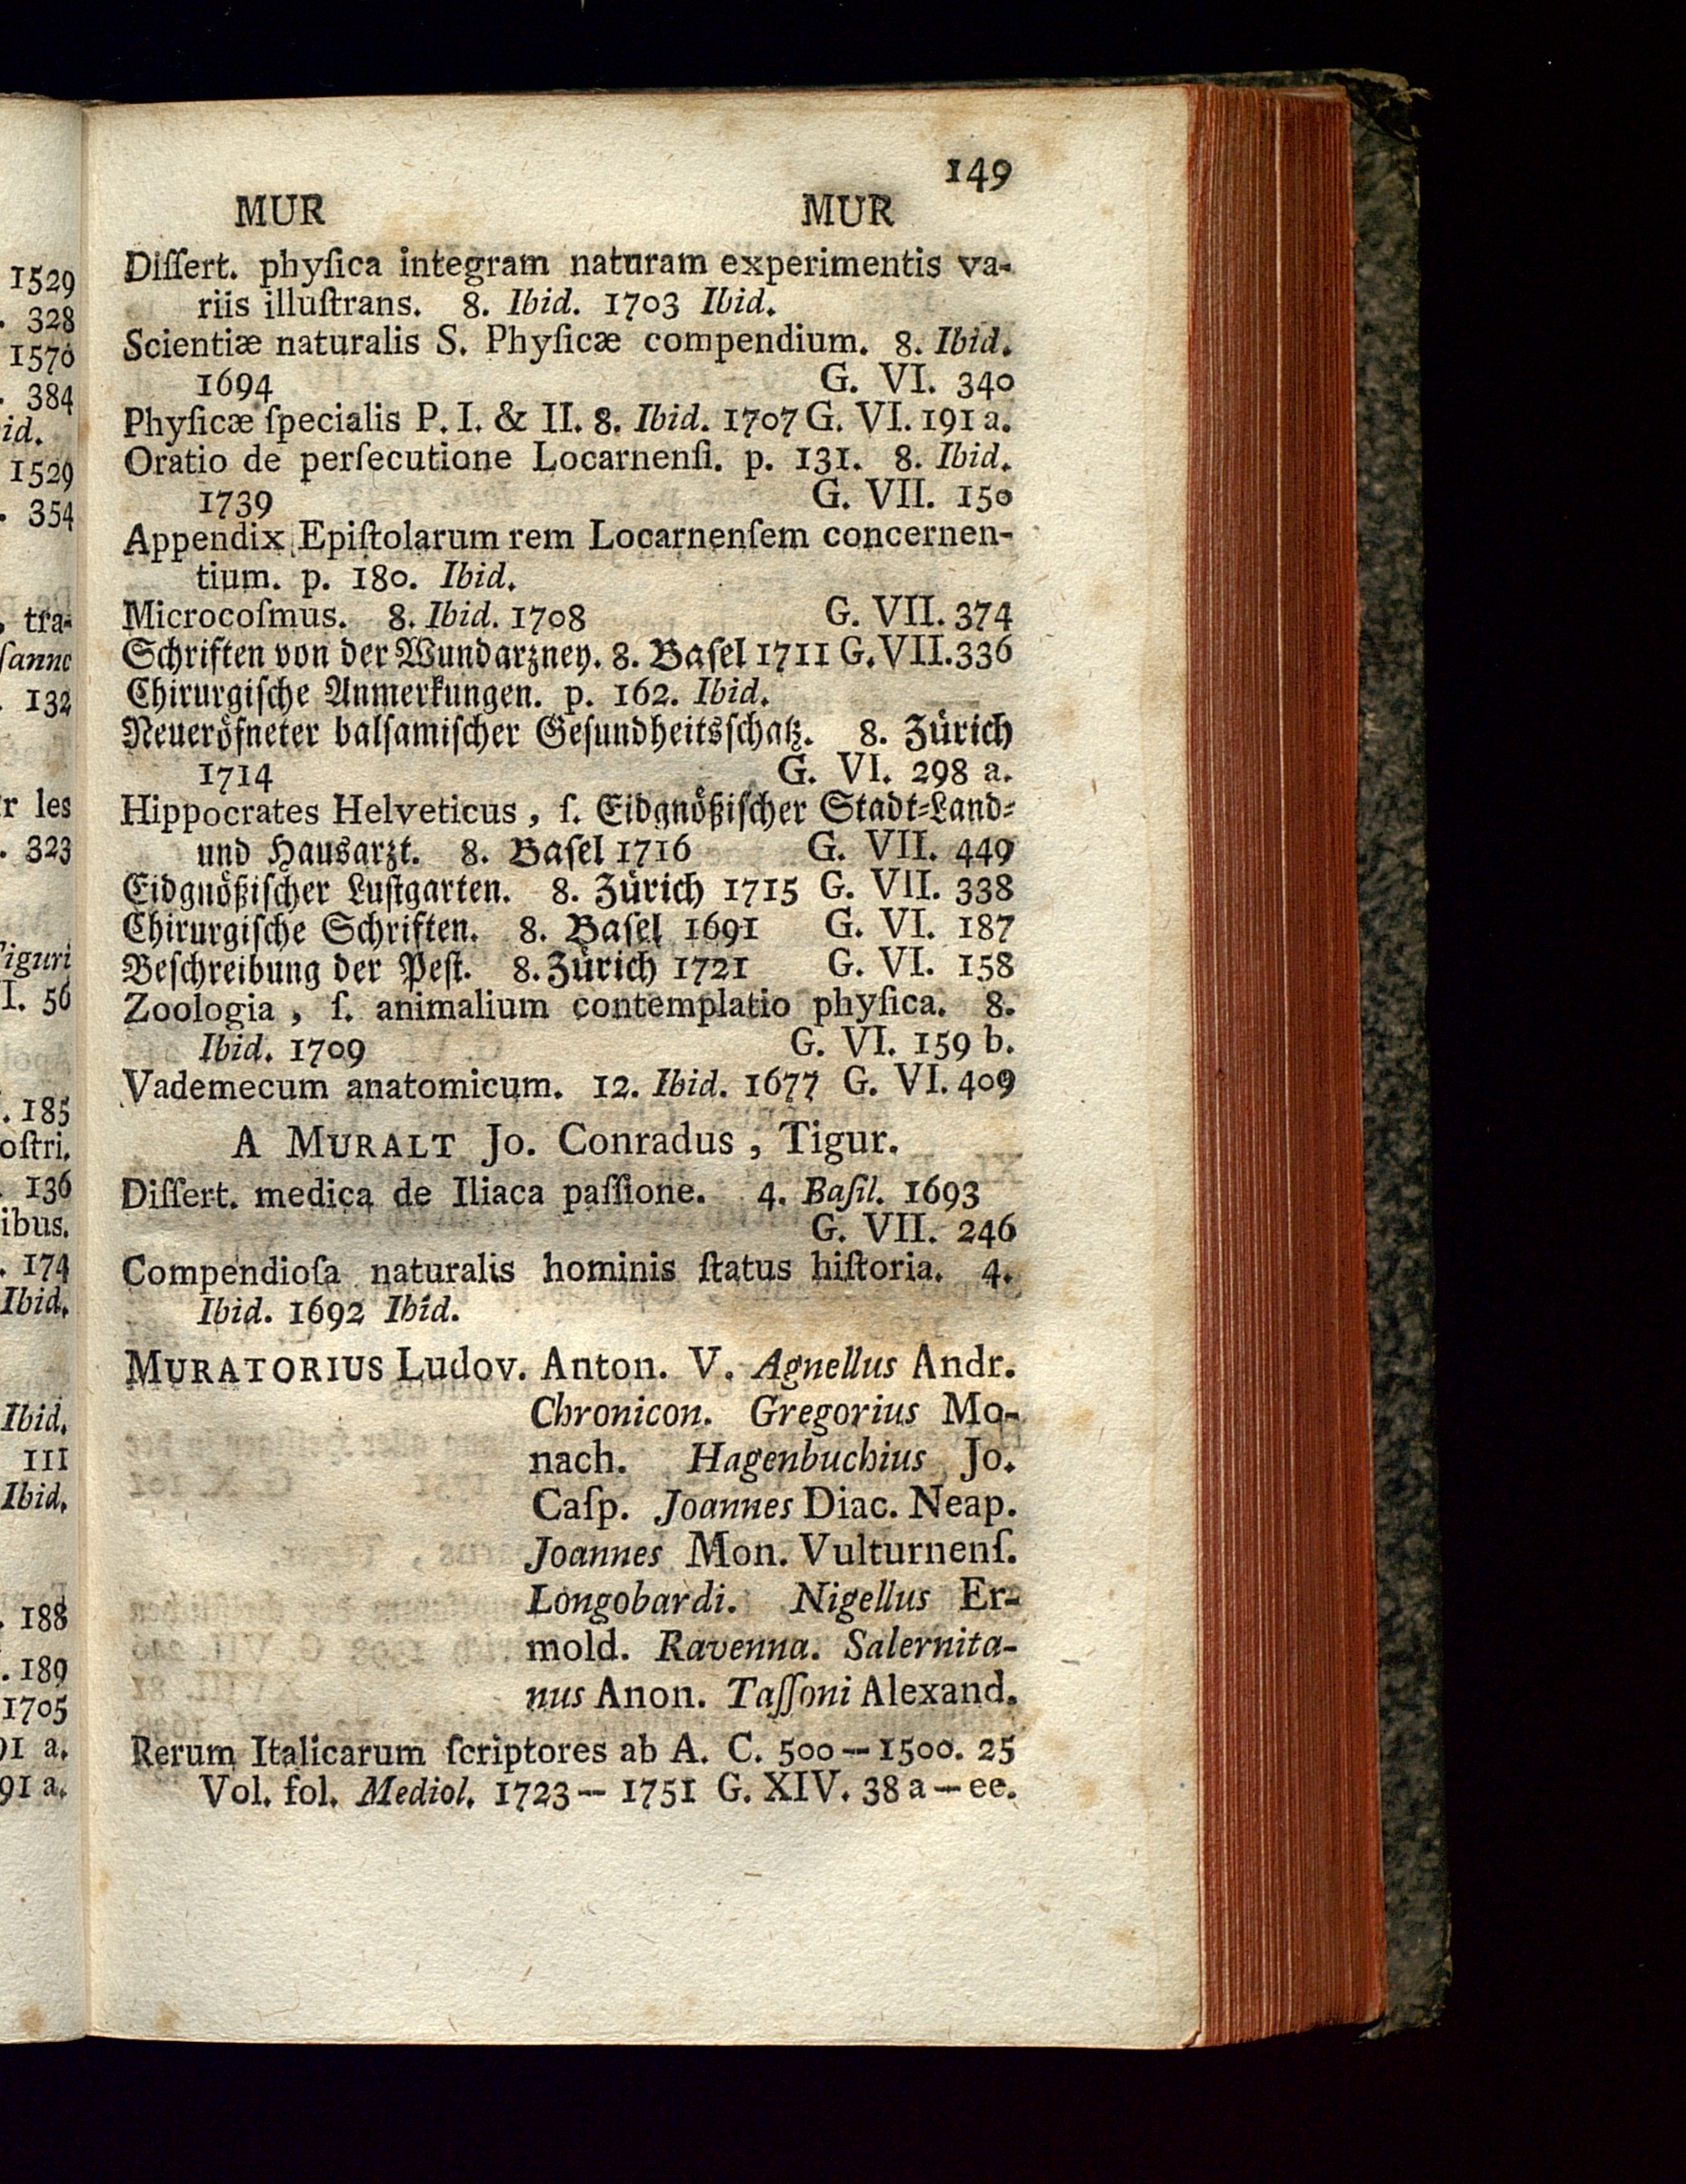 149
MUR MUR
Diſſert. phyſica integram naturam experimentis va-
riis illuſtrans. 8. Ibid. 1703 Ibid.
Scientiæ naturalis S. Phyſicæ compendium. 8. Ibid.
1694 G. VI. 340
Phyſicæ ſpecialis P. I. & II. 8. Ibid. 1707 G. VI. 191 a.
Oratio de perſecutione Locarnenſi. p. 131. 8. Ibid.
1739 G. VII. 150
Appendix Epiſtolarum rem Locarnenſem concernen-
tium. p. 180. Ibid.
Microcoſmus. 8. Ibid. 1708 G. VII. 374
Schriften von der Wundarzney. 8. Baſel 1711 G. VII. 336
Chirurgiſche Anmerkungen. p. 162. Ibid.
Neueröfneter balſamiſcher Geſundheitsſchatz. 8. Zürich
1714 G. VI. 298 a.
Hippocrates Helveticus, ſ. Eidgnößiſcher Stadt-Land-
und Hausarzt. 8. Baſel 1716 G. VII. 449
Eidgnößiſcher Luſtgarten. 8. Zürich 1715 G. VII. 338
Chirurgiſche Schriften. 8. Baſel 1691 G. VI. 187
Beſchreibung der Peſt. 8. Zürich 1721 G. VI. 158
Zoologia, ſ. animalium contemplatio phyſica. 8.
Ibid. 1709 G. VI. 159 b.
Vademecum anatomicum. 12. Ibid. 1677 G. VI. 409
A MURALT Jo. Conradus, Tigur.
Diſſert. medica de Iliaca paſſione. 4. Baſil. 1693
G. VII. 246
Compendioſa naturalis hominis ſtatus hiſtoria. 4.
Ibid. 1692 Ibid.
MURATORIUS Ludov. Anton. V. Agnellus Andr.
Chronicon. Gregorius Mo-
nach. Hagenbuchius Jo.
Caſp. Joannes Diac. Neap.
Joannes Mon. Vulturnenſ.
Longobardi. Nigellus Er-
mold. Ravenna. Salernita-
nus Anon. Taſſoni Alexand.
Rerum Italicarum ſcriptores ab A. C. 500—1500. 25
Vol. fol. Mediol. 1723—1751 G. XIV. 38 a—ee.
1529
. 328
1570
. 384
id.
1529
. 354
, tra-
ſanne
. 132
r les
. 323
iguri
I. 56
. 185
oſtri.
. 136
ibus.
. 174
Ibid.
Ibid.
111
Ibid.
. 188
. 189
1705
91 a.
91 a.